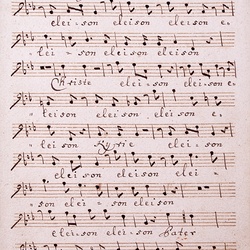 elei=son eleison eleison e
lei=son eleison eleison
Christe eleison eleison e
leison eleison eleison
leison Kyrie eleison
eleison eleison elei=
son eleison eleison
eleison eleison Pater